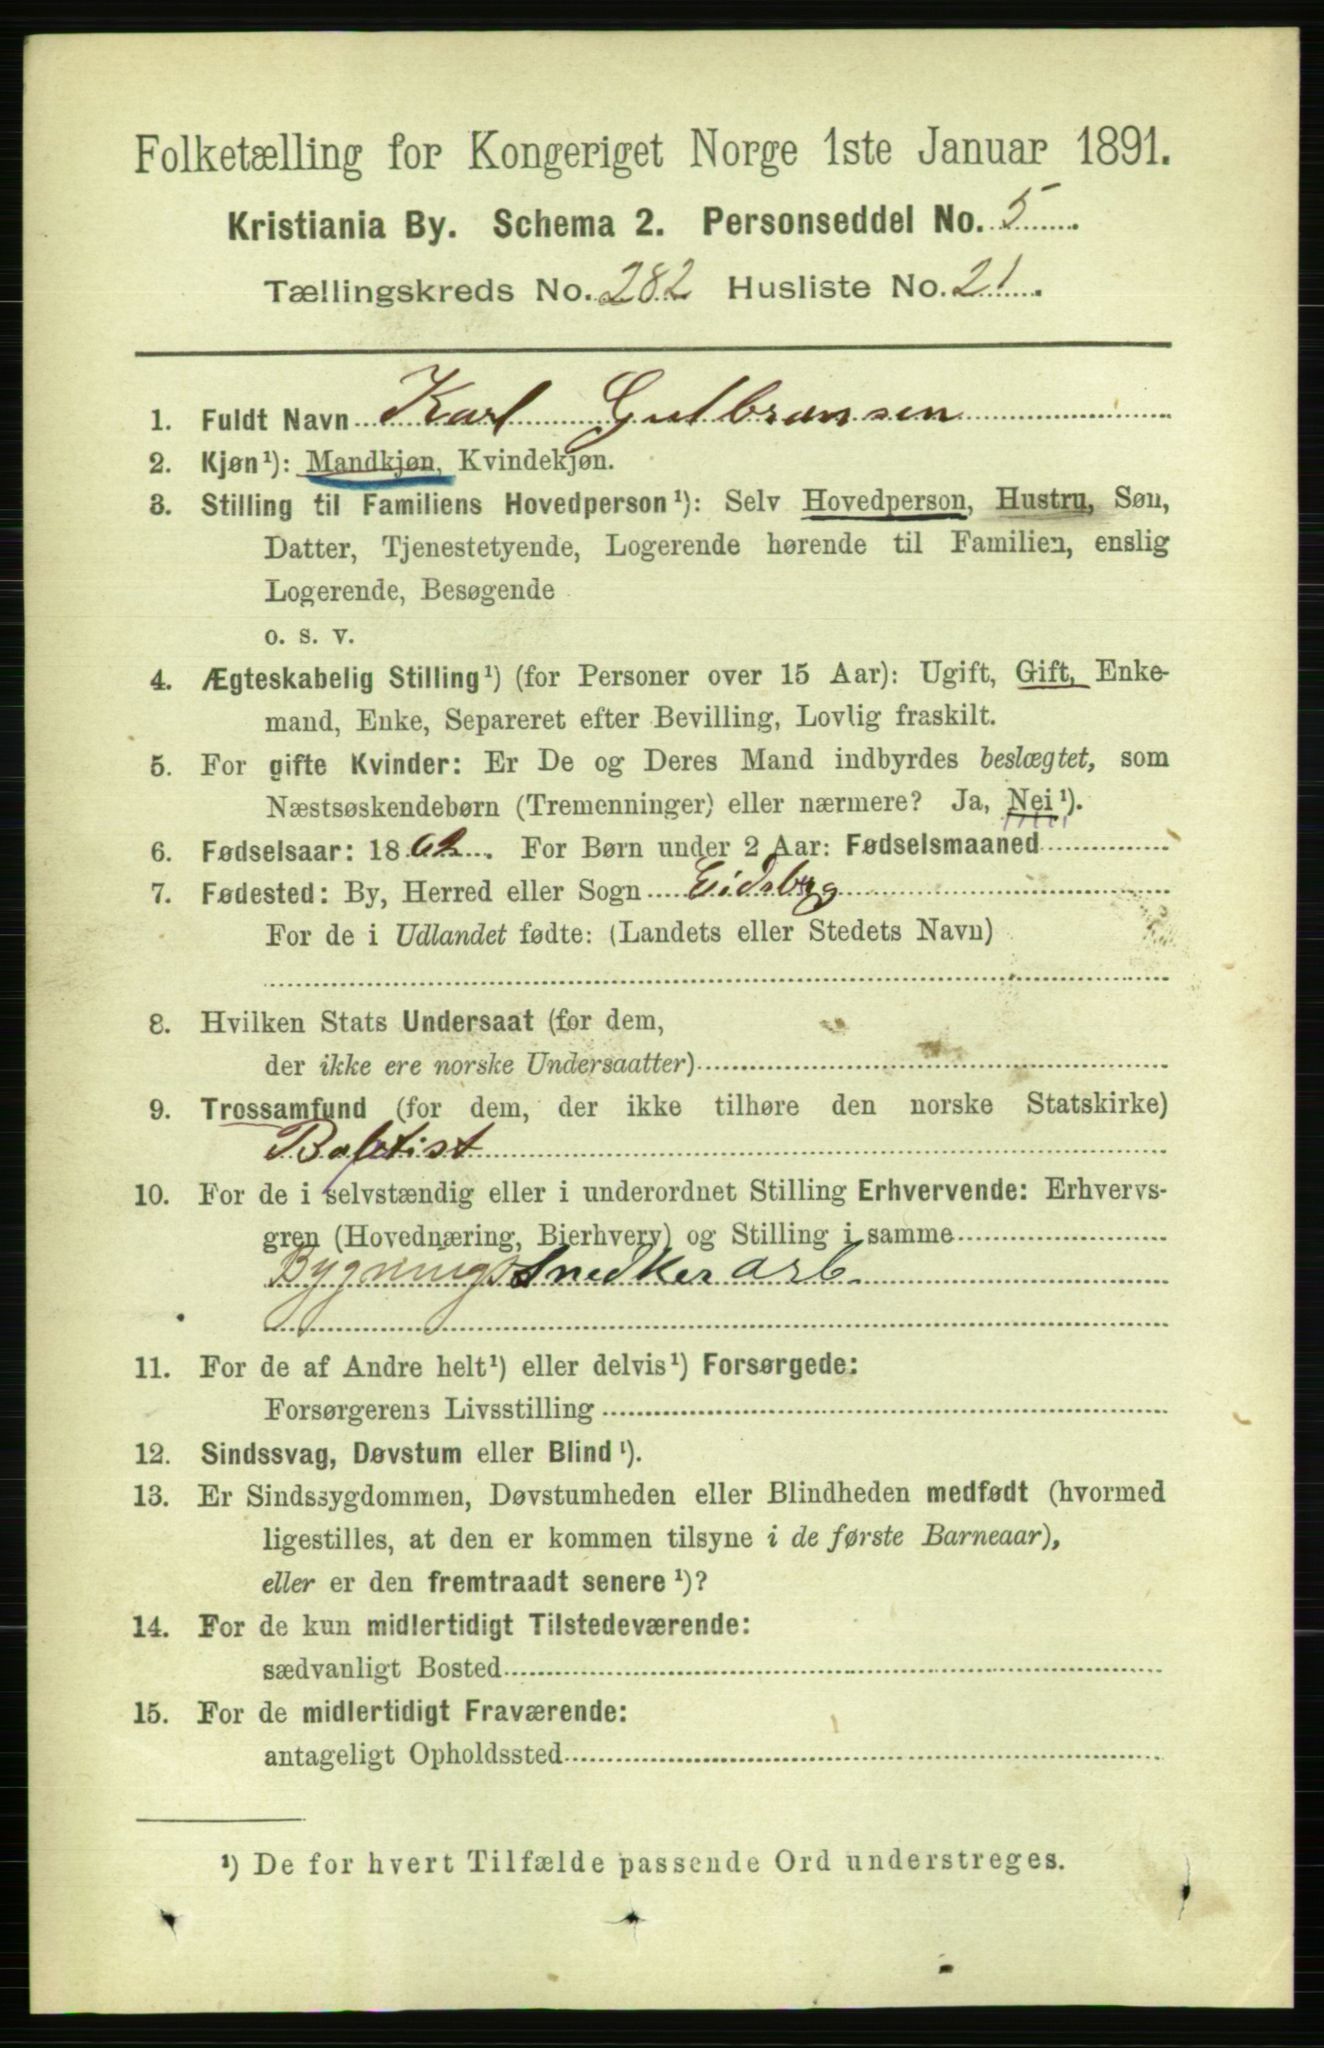 Folketælling for Kongeriget Norge 1ste Januar 1891.
Kristiania By. Schema 2. Personseddel No. 5
Tællingskreds No. 282 Husliste No. 21.
1. Fuldt Navn Karl Gulbransen
2. Kjøn¹): Mandkjøn, Kvindekjøn.
3. Stilling til Familiens Hovedperson¹): Selv Hovedperson, Hustru, Søn,
Datter, Tjenestetyende, Logerende hørende til Familien, enslig
Logerende, Besøgende
o. s. v.
4. Ægteskabelig Stilling¹) (for Personer over 15 Aar): Ugift, Gift, Enke-
mand, Enke, Separeret efter Bevilling, Lovlig fraskilt.
5. For gifte Kvinder: Er De og Deres Mand indbyrdes beslægtet, som
Næstsøskendebørn (Tremenninger) eller nærmere? Ja, Nei¹).
6. Fødselsaar: 1862. For Børn under 2 Aar: Fødselsmaaned
7. Fødested: By, Herred eller Sogn Eidsbrg
For de i Udlandet fødte: (Landets eller Stedets Navn)
8. Hvilken Stats Undersaat (for dem,
der ikke ere norske Undersaatter)
9. Trossamfund (for dem, der ikke tilhøre den norske Statskirke)
Baptist
10. For de i selvstændig eller i underordnet Stilling Erhvervende: Erhvervs-
gren (Hovednæring, Bierhverv) og Stilling i samme
Bygningssnedker arb.
11. For de af Andre helt¹) eller delvis¹) Forsørgede:
Forsørgerens Livsstilling
12. Sindssvag, Døvstum eller Blind¹).
13. Er Sindssygdommen, Døvstumheden eller Blindheden medfødt (hvormed
ligestilles, at den er kommen tilsyne i de første Barneaar),
eller er den fremtraadt senere¹)?
14. For de kun midlertidigt Tilstedeværende:
sædvanligt Bosted
15. For de midlertidigt Fraværende:
antageligt Opholdssted
¹) De for hvert Tilfælde passende Ord understreges.